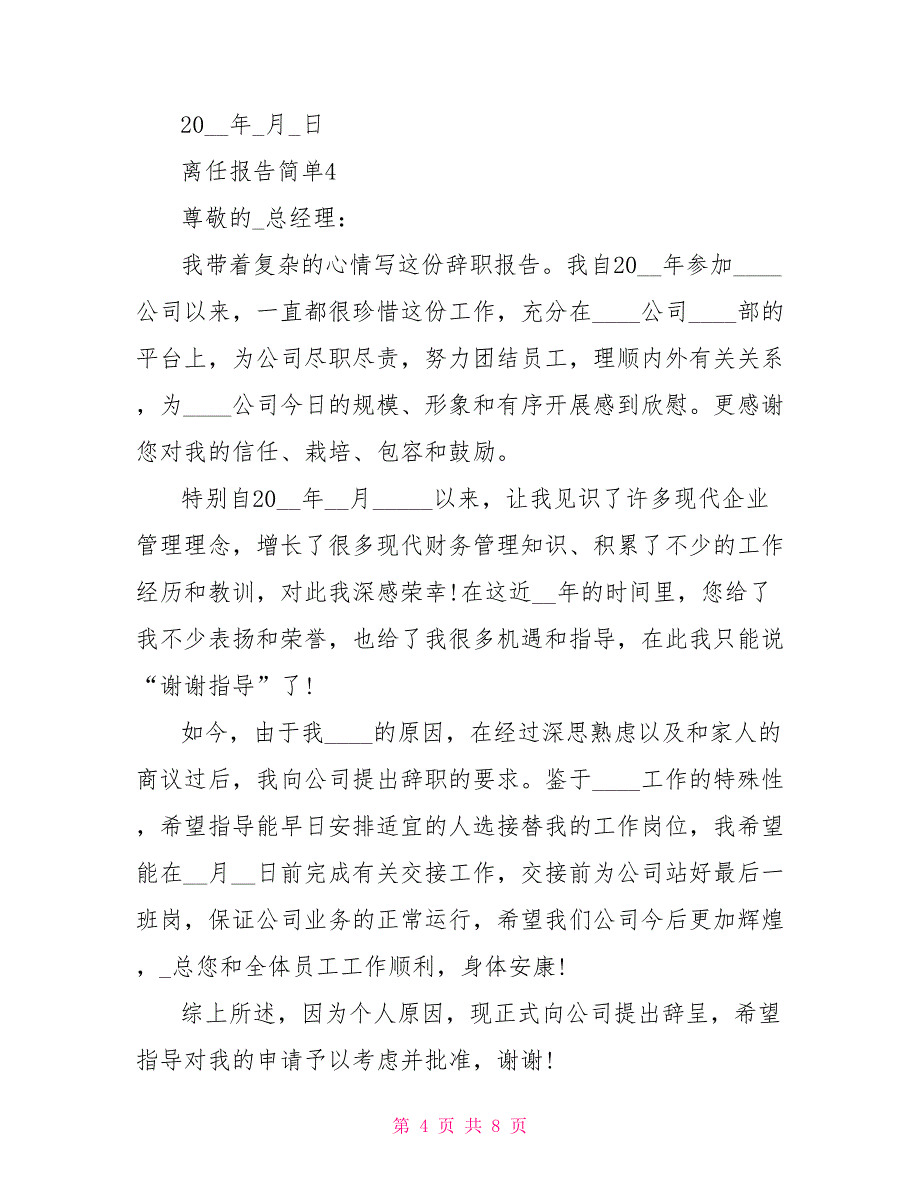 20__年_月_日
离任报告简单4
尊敬的_总经理：
我带着复杂的心情写这份辞职报告。我自20__年参加____
公司以来，一直都很珍惜这份工作，充分在____公司____部的
平台上，为公司尽职尽责，努力团结员工，理顺内外有关关系
，为____公司今日的规模、形象和有序开展感到欣慰。更感谢
您对我的信任、栽培、包容和鼓励。
特别自20__年__月_____以来，让我见识了许多现代企业
管理理念，增长了很多现代财务管理知识、积累了不少的工作
经历和教训，对此我深感荣幸!在这近__年的时间里，您给了
我不少表扬和荣誉，也给了我很多机遇和指导，在此我只能说
“谢谢指导”了!
如今，由于我____的原因，在经过深思熟虑以及和家人的
商议过后，我向公司提出辞职的要求。鉴于____工作的特殊性
，希望指导能早日安排适宜的人选接替我的工作岗位，我希望
能在__月__日前完成有关交接工作，交接前为公司站好最后一
班岗，保证公司业务的正常运行，希望我们公司今后更加辉煌
，_总您和全体员工工作顺利，身体安康!
综上所述，因为个人原因，现正式向公司提出辞呈，希望
指导对我的申请予以考虑并批准，谢谢!
第 4 页 共 8 页